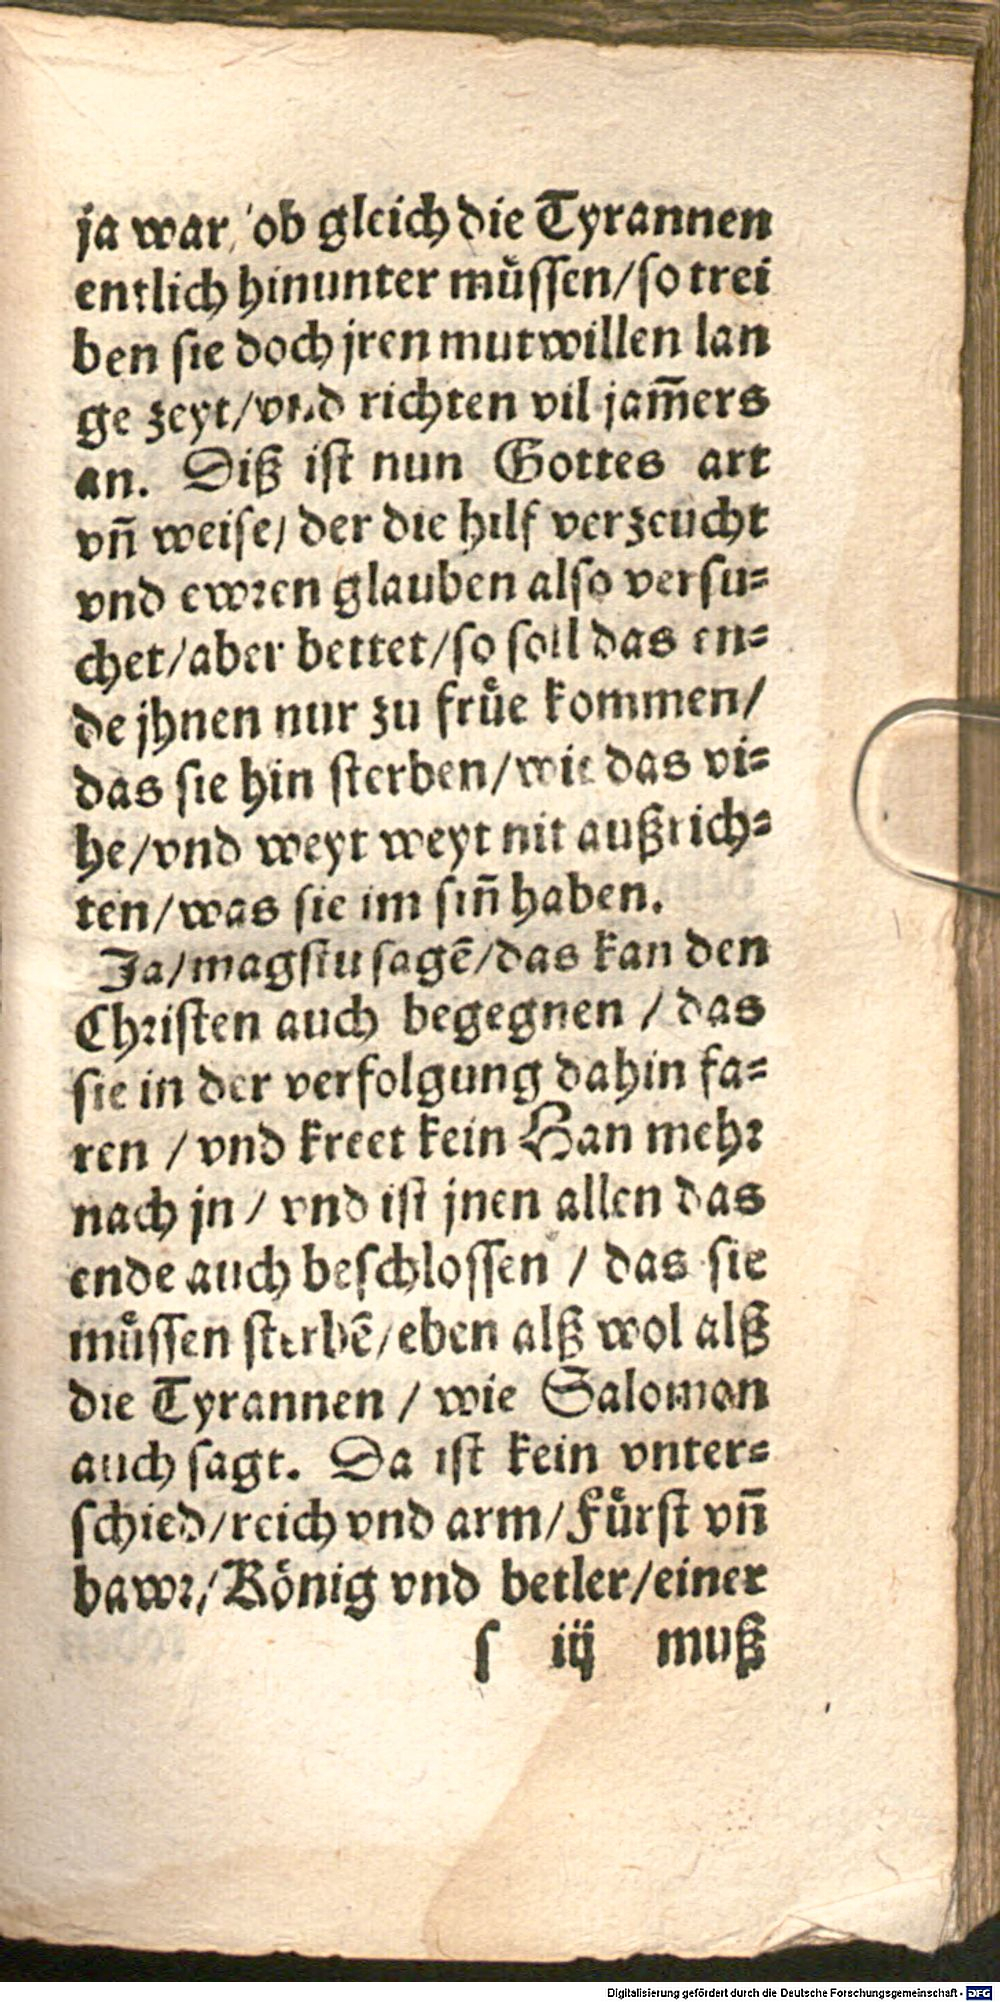 ja war/ ob gleich die Tyrannen
entlich hinunter müssen/so trei
ben sie doch jren mutwillen lan
ge zeyt/vnd richten vil jam̃ers
an. Diß ist nun Gottes art
vn̄ weise/ der die hilf verzeucht
vnd ewren glauben also versu=
chet/aber bettet/so soll das en=
de jhnen nur zu früe kommen/
das sie hin sterben/wie das vi=
he/vnd weyt weyt nit außrich=
ten/was sie im sin̄ haben.
Ja/magstu sagē/das kan den
Christen auch begegnen / das
sie in der verfolgung dahin fa=
ren / vnd kreet kein Han mehr
nach jn / vnd ist jnen allen das
ende auch beschlossen / das sie
müssen sterbē/eben alß wol alß
die Tyrannen / wie Salomon
auch sagt. Da ist kein vnter=
schied/reich vnd arm/Fürst vn̄
bawr/König vnd betler/einer
s iij muß
Digitalisierung gefördert durch die Deutsche Forschungsgemeinschaft - DFG